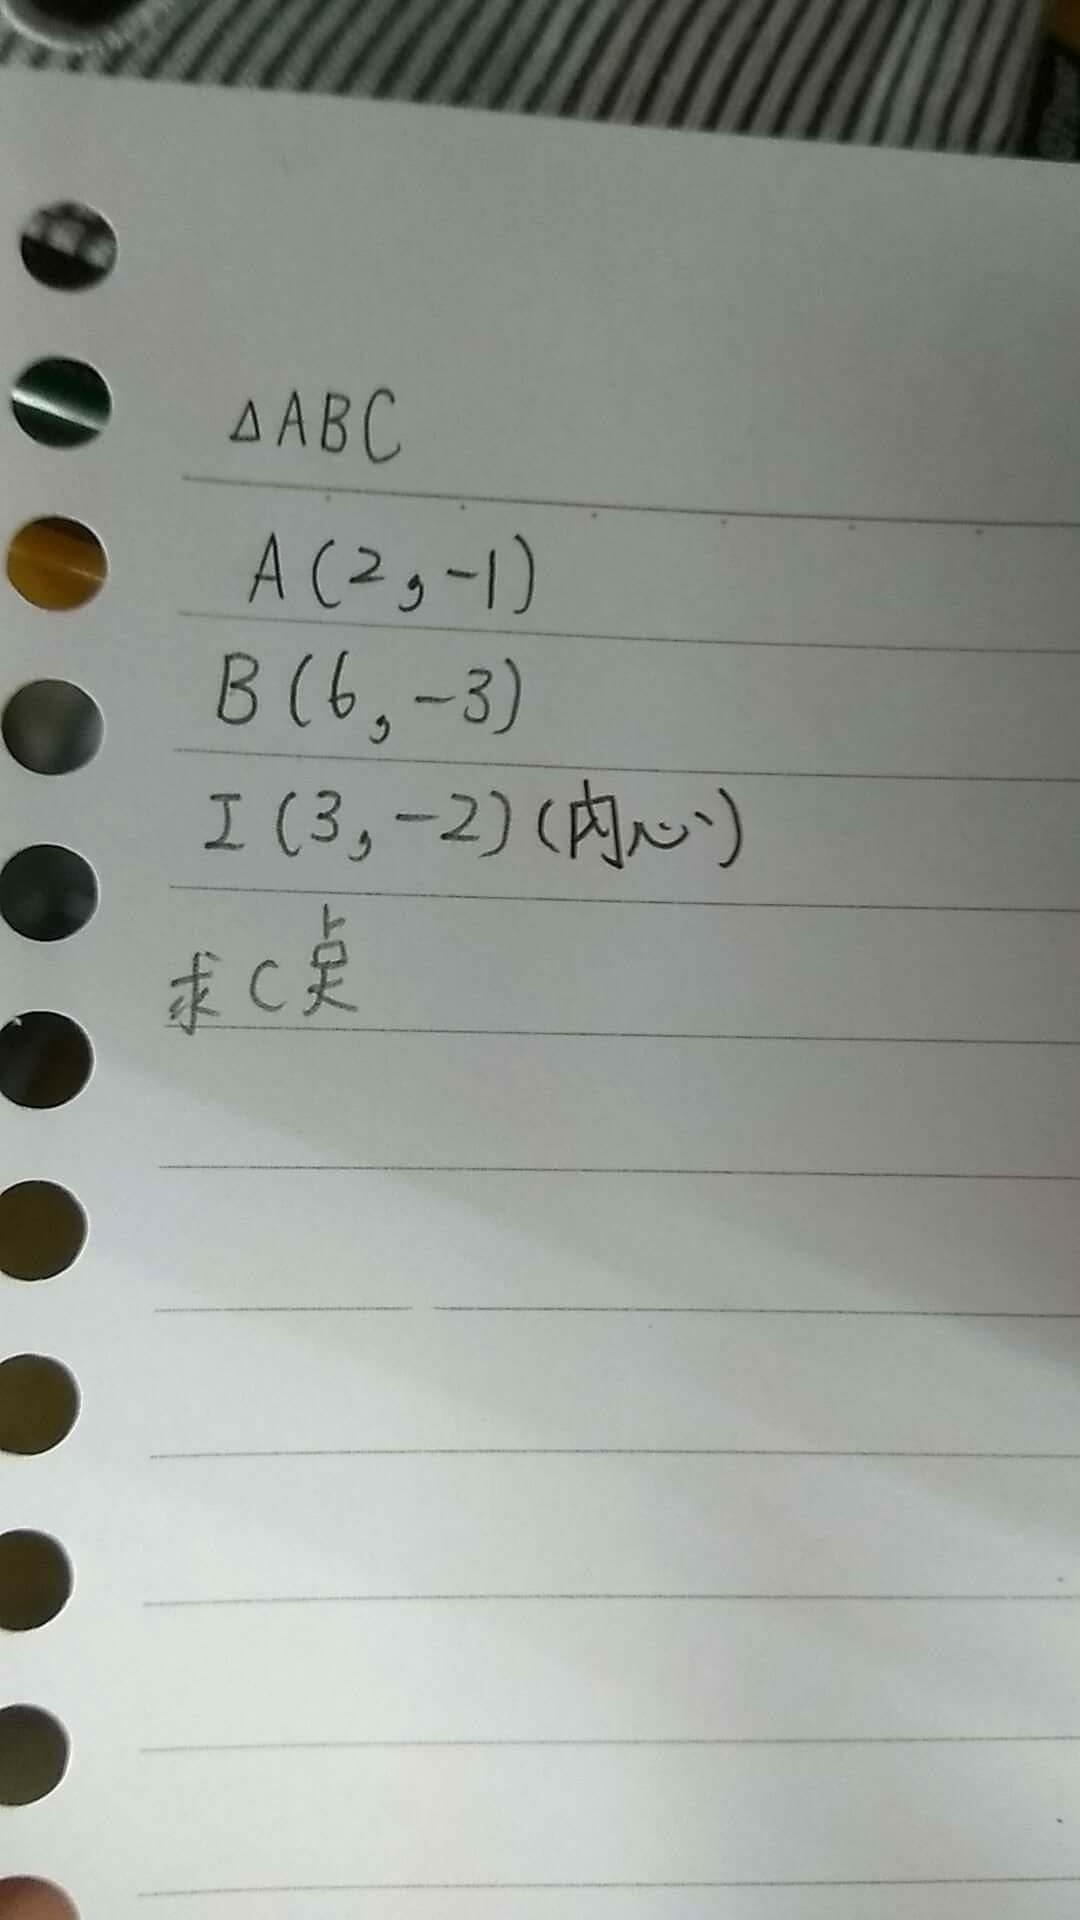 △ABC
A(2,-1)
B(6,-3)
I(3,-2)(内心)
求C点